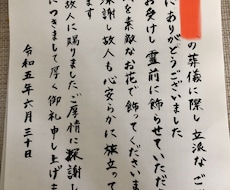 の葬儀に際し立派なご
にありがとうございました
お受けし霊前に飾らせていただ
を素敵なお花で飾ってくださいま
謝し故人も心安らかに旅立って
ます
故人に賜りましたご厚情に深謝し
につきまして厚く御礼申し上げま
令和五年六月三十日